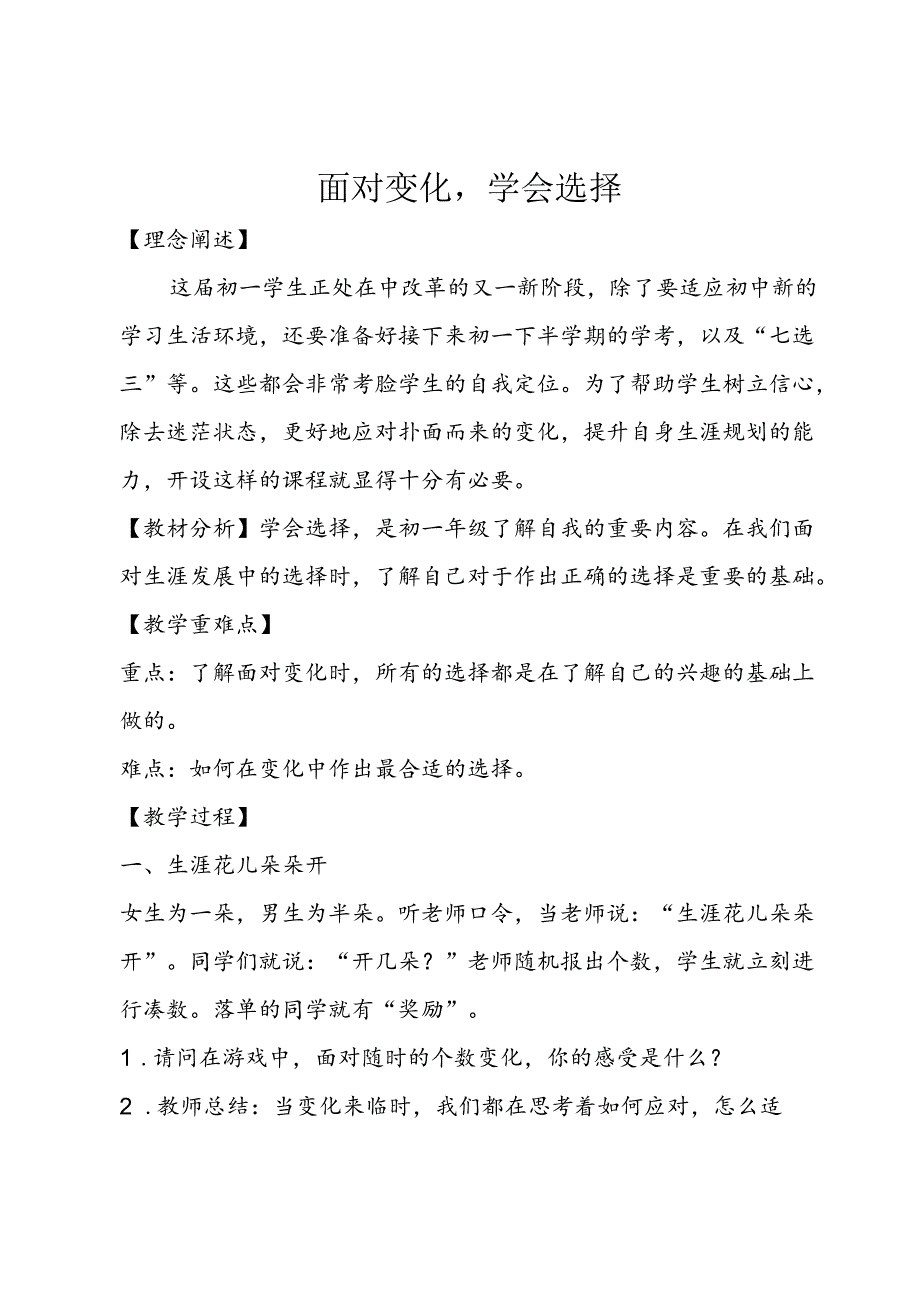 面对变化，学会选择
【理念阐述】
这届初一学生正处在中改革的又一新阶段，除了要适应初中新的
学习生活环境，还要准备好接下来初一下半学期的学考，以及“七选
三”等。这些都会非常考脸学生的自我定位。为了帮助学生树立信心，
除去迷茫状态，更好地应对扑面而来的变化，提升自身生涯规划的能
力，开设这样的课程就显得十分有必要。
【教材分析】学会选择，是初一年级了解自我的重要内容。在我们面
对生涯发展中的选择时，了解自己对于作出正确的选择是重要的基础。
【教学重难点】
重点：了解面对变化时，所有的选择都是在了解自己的兴趣的基础上
做的。
难点：如何在变化中作出最合适的选择。
【教学过程】
一、生涯花儿朵朵开
女生为一朵，男生为半朵。听老师口令，当老师说：“生涯花儿朵朵
开”。同学们就说：“开几朵？”老师随机报出个数，学生就立刻进
行凑数。落单的同学就有“奖励”。
1 .请问在游戏中，面对随时的个数变化，你的感受是什么？
2 .教师总结：当变化来临时，我们都在思考着如何应对，怎么适